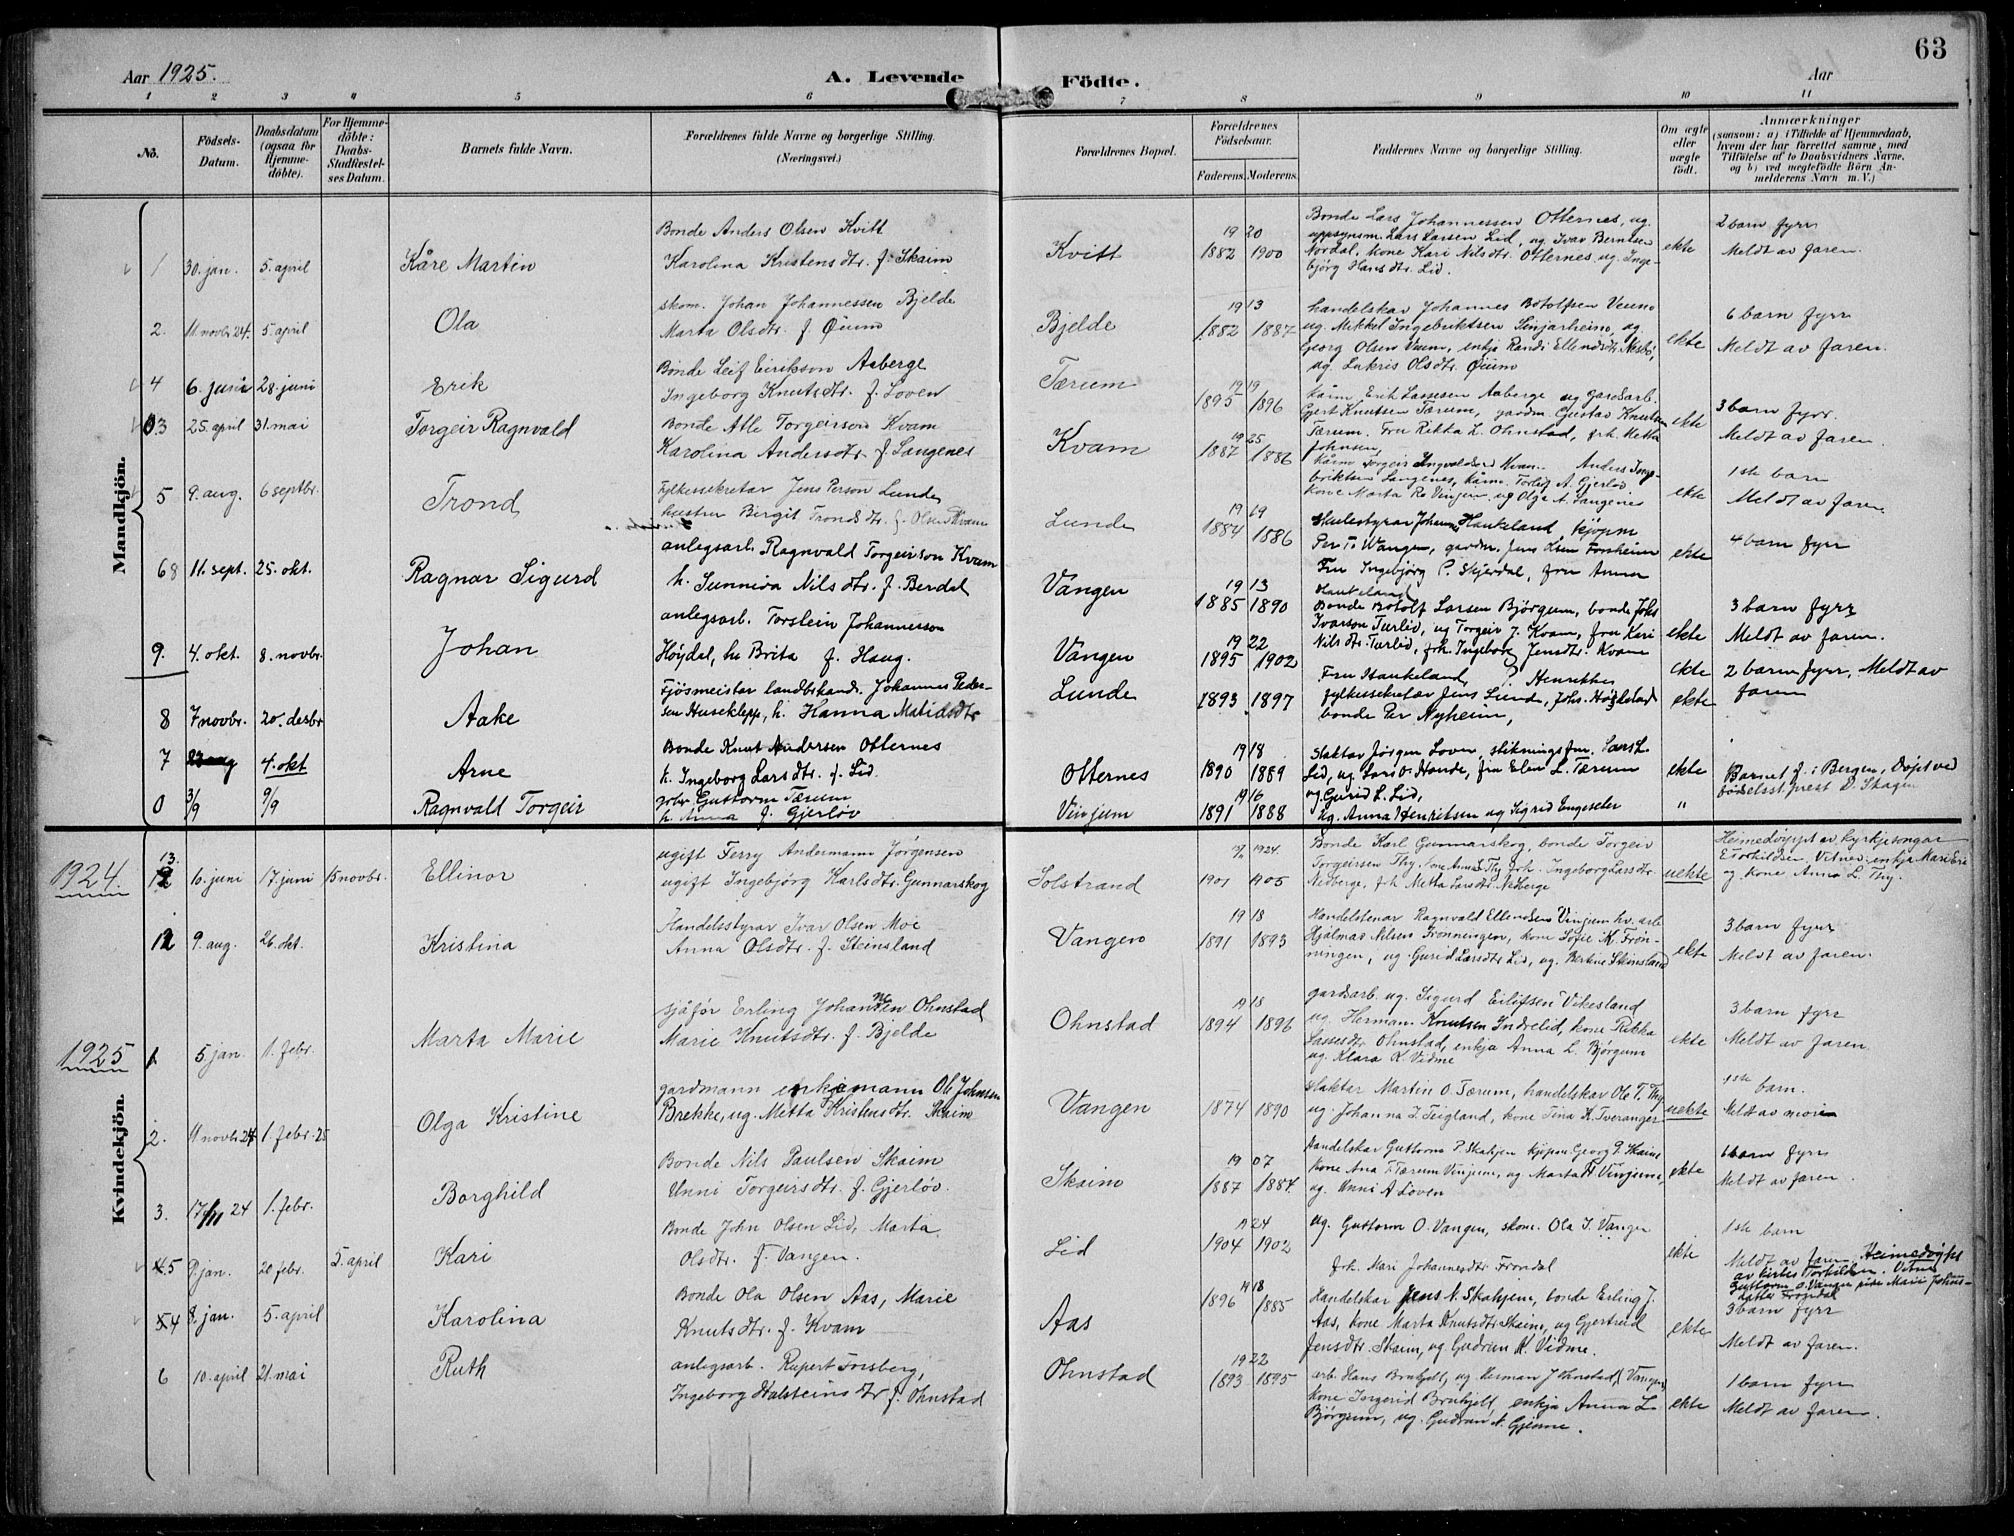 63
Aar 1925.
A. Levende Födte.
Aar
1 2 3 4 5 6 7 8 9 10 11
No.
Födsels-Datum.
Daabsdatum (ogsaa for Hjemme-döbte).
For Hjemme-döbte: Daabs-Stadfæstel-ses Datum.
Barnets fulde Navn.
Forældrenes fulde Navne og borgerlige Stilling. (Næringsvei.)
Forældrenes Bopæl.
Forældrenes Födselsaar.
Faderens. Moderens.
Faddernes Navne og borgerlige Stilling.
Om ægte eller uægte födt.
Anmærkninger
(saasom: a) i Tilfælde af Hjemmedaab, hvem der har forrettet samme, med Tilföielse af to Daabsvidners Navne, og b) ved uægtefödte Börn An-melderens Navn m. V.)
Mandkjön.
1 30. jan. 5. april Kåre Martin
Bonde Anders Olsen Kvitt
Karolina Kristensdtr. f. Skaim
Kvitt 19 20 1882 1900
Bonde Lars Johannessen Otternes, ug.
oppsynsm. Lars Larsen Lid, ug. Ivar Berntsen
Nordal, kone Kari Nilsdtr. Otternes, ug. Inge-
björg Hansdtr. Lid.
ekte
2 barn fyrr
Meldt av faren.
2. 11 novbr 24. 5. april Ola
skom. Johan Johannessen Bjelde
Marta Olsdtr. f. Øium
Bjelde 19 13 1882 1887
handelskar Johannes Botolfsen Veum
ug. Mikkel Ingebriktsen Sinjarheim, ug
Georg Olsen Veum, enkja Randi Ellendsdtr Nesbö,
ug. Lakris Olsdtr. Øium
ekte
6 barn fyrr
Meldt av faren.
4 6. juni 28. juni Erik
Bonde Leif Eirikson Aaberge
Ingeborg Knutsdtr. f. Loven
Tærum 19 19 1895 1896
kårm. Erik Lassesen Aaberge ug gardsarb.
Gjert Knutsen Tærum, gardm. Gustav Knutsen
Tærum. Fru Rikka L. Ohnstad, frk. Metta
Johnsen
ekte
3 barn fyrr.
Meldt av faren.
3 25. april 31. mai Torgeir Ragnvald
Bonde Atle Torgeirson Kvam
Karolina Andersdtr. f. Langenes
Kvam 19 25 1887 1886
Kårm Torgeir Ingvaldsen Kvam. Anders Inge-
briktsen Langenes, kårm. Torleif A. Gjerløv
kone Marta R. Vinjum, ug Olga A. Langenes
ekte
1ste barn
Meldt av faren
5 9. aug. 6 septbr. Trond
Fylkessekretar Jens Person Lunde
hustru Birgit Trondsdtr. f. Olsen Kvam
Lunde 19 19 1884 1886
Skulestyrar Johannes Haukeland kjöpm
Per T. Wangen, gardm. Jens Olsen Forsheim
Fru Ingebjørg P. Skjerdal, fru Anna
Haukeland
ekte
4 barn fyrr
68 11. sept. 25. okt. Ragnar Sigurd
anlegsarb. Ragnvald Torgeirson Kvam
h. Sunniva Nilsdtr. f. Berdal
Vangen 19 13 1885 1890
Bonde Botolf Larsen Björgum, bonde Johs
Ivarson Turlid, ug Torgeir J. Kvam, fru Kari
Nilsdtr. Turlid, frk. Ingeborg Jensdtr. Kvam
ekte
3 barn fyrr
Meldt av faren.
9. 4. okt. 8. novbr. Johan
anlegsarb. Torstein Johannesson
Höydal, h. Brita f. Haug.
Vangen 19 22 1895 1902
ekte
2 barn fyrr, Meldt av
faren
8 7 novbr. 20. desbr Aake
Fjösmeistar landbrsk. Johannes Peder-
sen Huseklepp, h. Hanna Matisdtr
Lunde 1893 1897
Fru Haukeland, P. Henrikke
fylkessekretær Jens Lunde, Johs. Haukeland
bonde Per Nyheim,
ekte
7 23 aug 4. okt Arne
Bonde Knut Andersen Otternes
h. Ingeborg Larsdtr. f. Lid.
Otternes 19 18 1890 1889
Slaktar Jörgen Loven, stikningsfm. Lars L.
Lid, ug Lars O. Honde, fru Elen L. Tærum
og Gurid L. Lid,
ekte
0 3/9 9/9 Ragnvald Torgeir
Guttorm Tærum
h. Anna f. Gjerløv
Vinjum 19 16 1891 1888
ug. Anna Henriksen ug Sigrid Engeseter
"
Barnet f. i Bergen, Döpt ved
födselsst. prest D. Skagen
Kvindekjön.
1924.
13. 12 10. juni 17 juni 15 novbr. Ellinor
ugift Ferry Andermann Jörgensen
ugift Ingebjörg Karlsdtr. Gunnarskog
Solstrand 1924. 1901 1905
Bonde Karl Gunnarskog, bonde Torgeir
Torgeirsen Thy, kone Anna L. Thy, frk. Ingeborg Larsdtr.
Nedberge, frk Metta Larsdtr Nedberge
uekte
Heimedöypt av kyrkjesongar
E Torkildsen, Vitner: enkja Mari Eri
og kone Anna L. Thy.
12 9. aug. 26. okt. Kristina
Handelsstyrar Ivar Olsen Moe
Anna Olsdtr. f. Steinsland
Vangen 19 18 1891 1893
Handelstenar Ragnvald Ellendsen Vinjum hv. arb
Hjalmar Nilsen Frönningen, kone Sofie K. Frön-
ningen, ug. Gurid Larsdtr Lid, ug. Bertine Steinsland
ekte
3 barn fyrr
Meldt av faren.
1925
1 5 jan. 1. febr. Marta Marie
sjåför Erling Johannesen Ohnstad
Marie Knutsdtr. f. Bjelde
Ohnstad 19 18 1894 1896
gardsarb. ug. Sigurd Eilifsen Vikesland
ug Herman Knutsen Indrelid, kone Rikka
Lassesdtr Ohnstad, enkja Anna L. Björgum
ug. Klara K. Vidme
ekte
3 barn fyrr
Meldt av faren.
2. 11 novbr 24 1. febr. 25 Olga Kristine
gardmann enkjemann Ole Johnsen
Brekke, ug. Metta Kristensdtr. Skaim
Vangen 1874 1890
slakter Martin O. Tærum, handelskar Ole T. Thy
ug. Johanna I. Teigland, kone Tina K. Tveranger
uekte
1ste barn.
Meldt av mori
3. 17/11 24 1. febr. Borghild
Bonde Nils Paulsen Skaim
Unni Torgeirsdtr. f. Gjerløv.
Skaim 19 07 1887 1884.
Handelskar Guttorm P. Skahjem kjöpm. Georg P. Skaim
kone Ana T. Tærum Vinjum, ug Marta H Vinjum,
ug. Unni A Loven
ekte
6 barn fyrr
Meldt av faren.
5 9. jan. 20 febr. 5. april Kari
Bonde John Olsen Lid, Marta
Olsdtr. f. Vangen.
Lid 19 24 1904 1902
ug. Guttorm O. Vangen, skom. Ola I. Vangen
frk. Mari Johannesdtr Frondal
ekte
1ste barn
Meldt av faren. Heimedöypt
av kirkes. Torkildsen. Vitne
Guttorm O. Vangen, pike Mari Johans-
datter Frondal
4 8. jan. 5. april Karolina
Bonde Ola Olsen Aas, Marie
Knutsdtr. f. Kvam
Aas 19 18 1896 1885
Handelskar Jens N. Skahjem, bonde Erling J.
Aas, kone Marta Knutsdtr Skaim, ug Gjertrud
Jensdtr. Skaim, ug Gudrun K. Vidme.
ekte
3 barn fyrr
Meldt av faren.
6 10. april 21. mai Ruth
anlegsarb. Rupert Forsberg,
Ingeborg Halsteinsdtr f. Ohnstad
Ohnstad 19 22 1893 1895
arb. Hans Brukjell, ug Herman J Ohnstad, (Vangen)
kone Ingerid Brukjell, enkja Anna L.
Björgum, ug. Gudrun A. Gjeime.
ekte
1 barn fyrr
Meldt av faren.